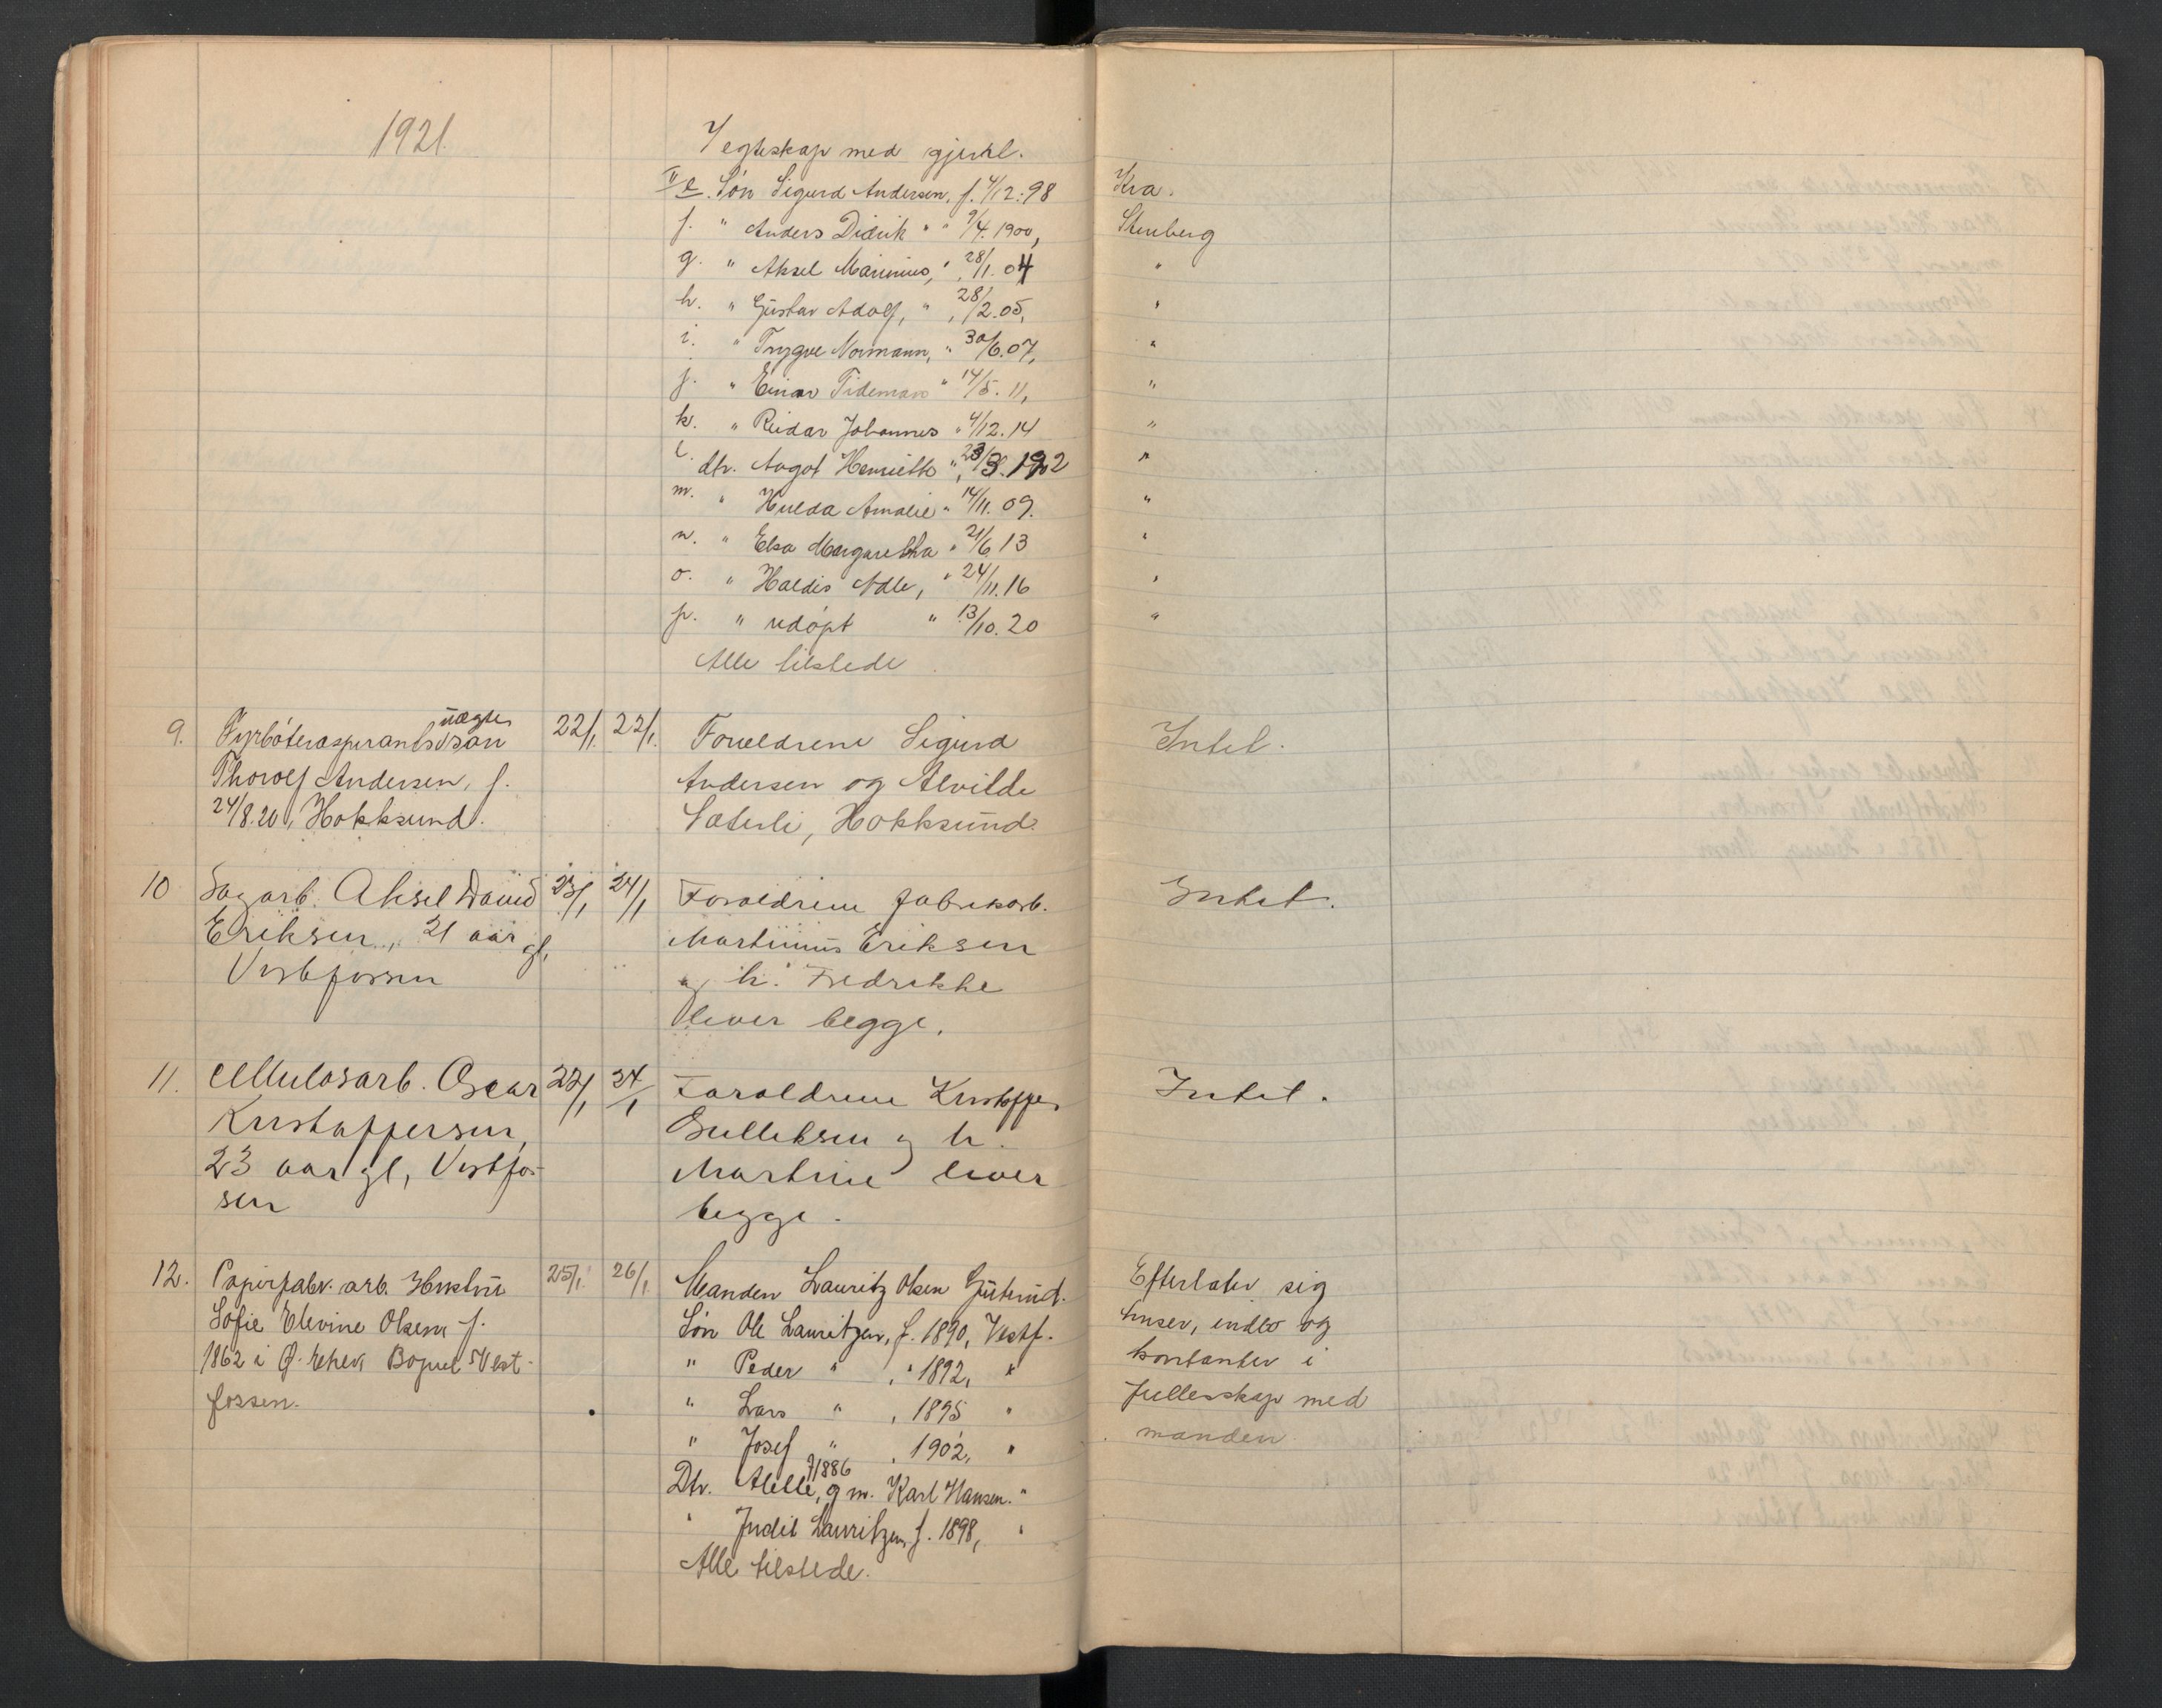 1921.
I egteskap med gjenl.
II e. Søn Sigurd Andersen, f. 4/12.98 Kra.
f. " Anders Didrik " " 9/4. 1900, Stenberg
g. " Aksel Marinius, " , 28/1. 04 "
h. " Gustav Adolf, " , 28/2.05, "
i. " Trygve Normann, " 30/6.07, "
j. " Einar Tideman " 14/5. 11, "
k. " Reidar Johannes " 4/12. 14 "
l. dtr. Aagot Henriette " , 23/3. 1902 "
m. " Hulda Amalie " 14/11. 09. "
n. " Elsa Margaretha " 21/6 13 "
o. " Haldis Adle, " 24/11. 16 "
p. " udøpt " 13/10. 20 "
Alle tilstede
9. Fyrbøteraspirants uægte søn 22/1. 22/1. Forældrene Sigurd Intet.
Thorolf Andersen, f. Andersen og Alvilde
24/8.20, Hokksund. Sæterli, Hokksund.
10 Sagarb. Aksel David 23/1 24/1 Foraldrene fabrikarb. Intet.
Eriksen, 21 aar gl, Martinius Eriksen
Vestfossen og h. Fredrikke
lever begge.
11. Cellulosarb. Oscar 22/1 24/1 Foraldrene Kristoffer Intet.
Kristoffersen, Gulliksen og h.
23 aar gl, Vestfos- Martine lever
sen begge.
12. Papirfabr. arb. Hustru 25/1. 26/1. Manden Lauritz Olsen Gjuterud. Efterlater sig
Sofie Elevine Olsen f. Søn Ole Lauritzen, f. 1890, Vestf. huser, indbo og
1862 i Ø. Eker Bopæl Vest- " Peder " , " 1892, " kontanter i
fossen. " Lars " , 1895 " fællesskap med
" Josef " , 1902, " manden
Dtr. Alette, f 1886 g m. Karl Hansen. "
" Judit Lauritzen, f. 1898, "
Alle tilstede.